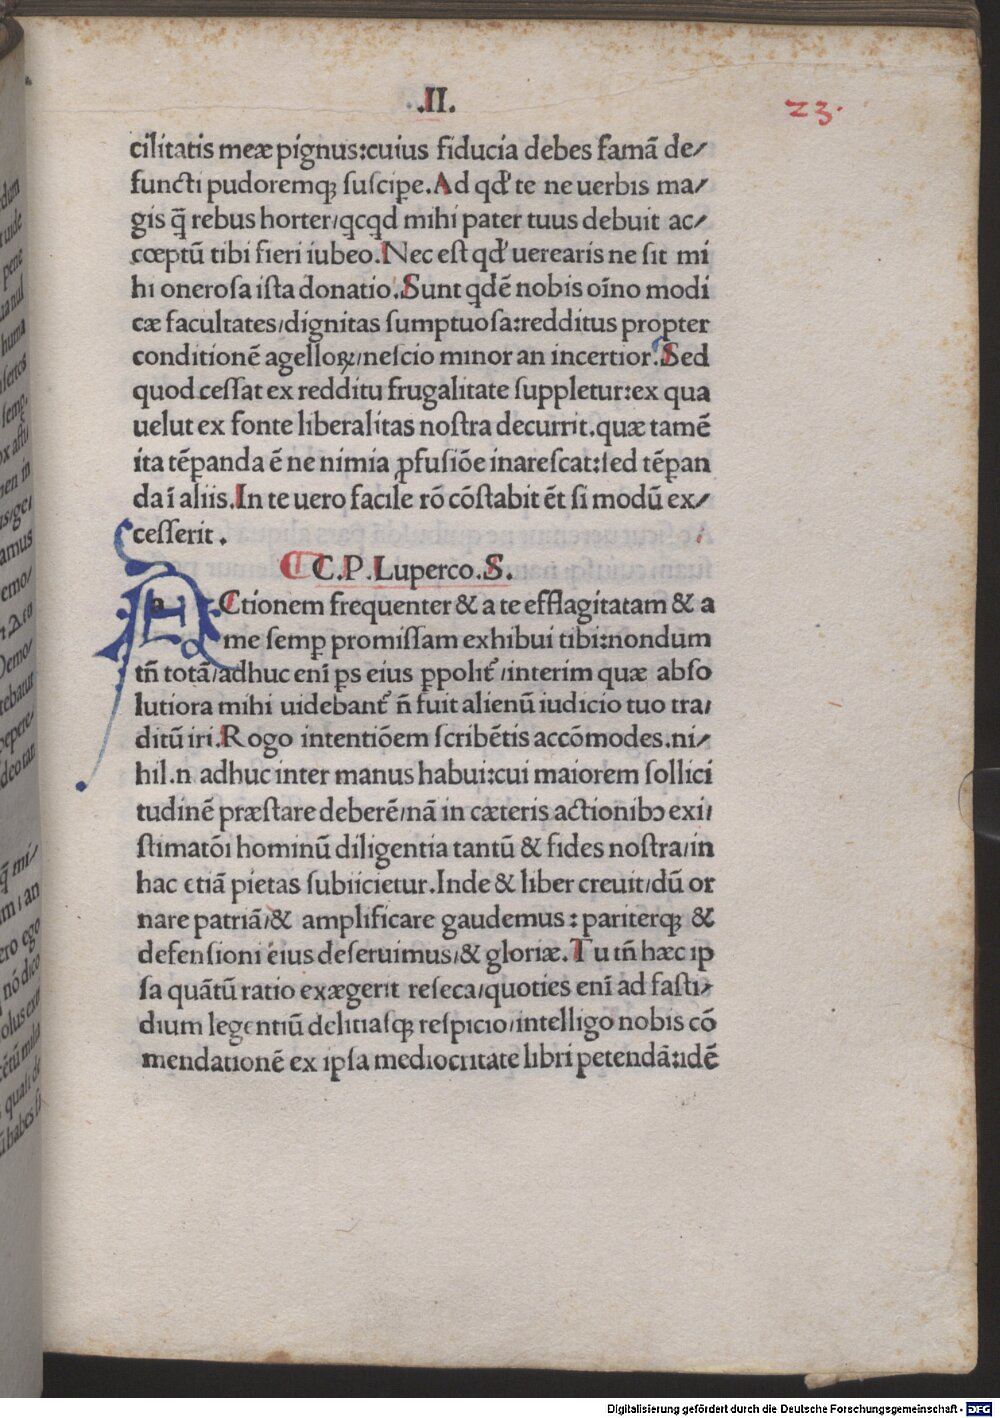 .II.
23.
cilitatis meæ pignus:cuius fiducia debes famā de/
functi pudoremq; suscipe.Ad qđ te ne uerbis ma/
gis q̄ rebus horter/qcqd mihi pater tuus debuit ac/
cœptū tibi fieri iubeo.Nec est qđ uerearis ne sit mi
hi onerosa ista donatio.Sunt qdē nobis oīno modi
cæ facultates/dignitas sumptuosa:redditus propter
conditionē agelloꝝ/nescio minor an incertior.Sed
quod cessat ex redditu frugalitate suppletur:ex qua
uelut ex fonte liberalitas nostra decurrit.quæ tamē
ita tēꝑanda ē ne nimia ꝓfusiōe inarescat:sed tēꝑan
da ī aliis.In te uero facile rō cōstabit ēt si modū ex/
cesserit.
C.P.Luperco.S.
ACtionem frequenter & a te efflagitatam & a
me semꝑ promissam exhibui tibi:nondum
tñ totā/adhuc enī ꝑs eius ꝑpolit̄/interim quæ abso
lutiora mihi uidebant̄ ñ fuit alienū iudicio tuo tra/
ditū iri.Rogo intentiōem scribētis accōmodes.ni/
hil.n adhuc inter manus habui:cui maiorem sollici
tudinē præstare deberē/nā in cæteris actionibꝫ exi/
stimatōi hominū diligentia tantū & fides nostra/in
hac etiā pietas subiicietur.Inde & liber creuit/dū or
nare patriā/& amplificare gaudemus:pariterq; &
defensioni eius deseruimus/& gloriæ.Tu tñ hæc ip
sa quātū ratio exægerit reseca/quoties enī ad fasti/
dium legentiū delitiasq; respicio/intelligo nobis cō
mendationē ex ipsa mediocritate libri petendā:idē
Digitalisierung gefördert durch die Deutsche Forschungsgemeinschaft - DFG